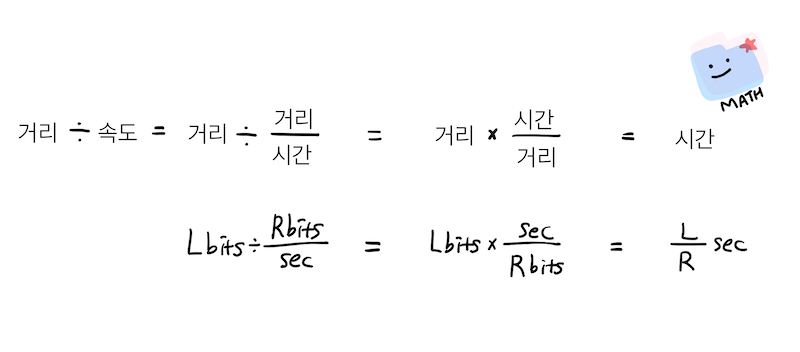 MATH
거리 ÷ 속도 = 거리 ÷ 거리/시간 = 거리 × 시간/거리 = 시간
Lbits ÷ Rbits/sec = Lbits × sec/Rbits = L/R sec